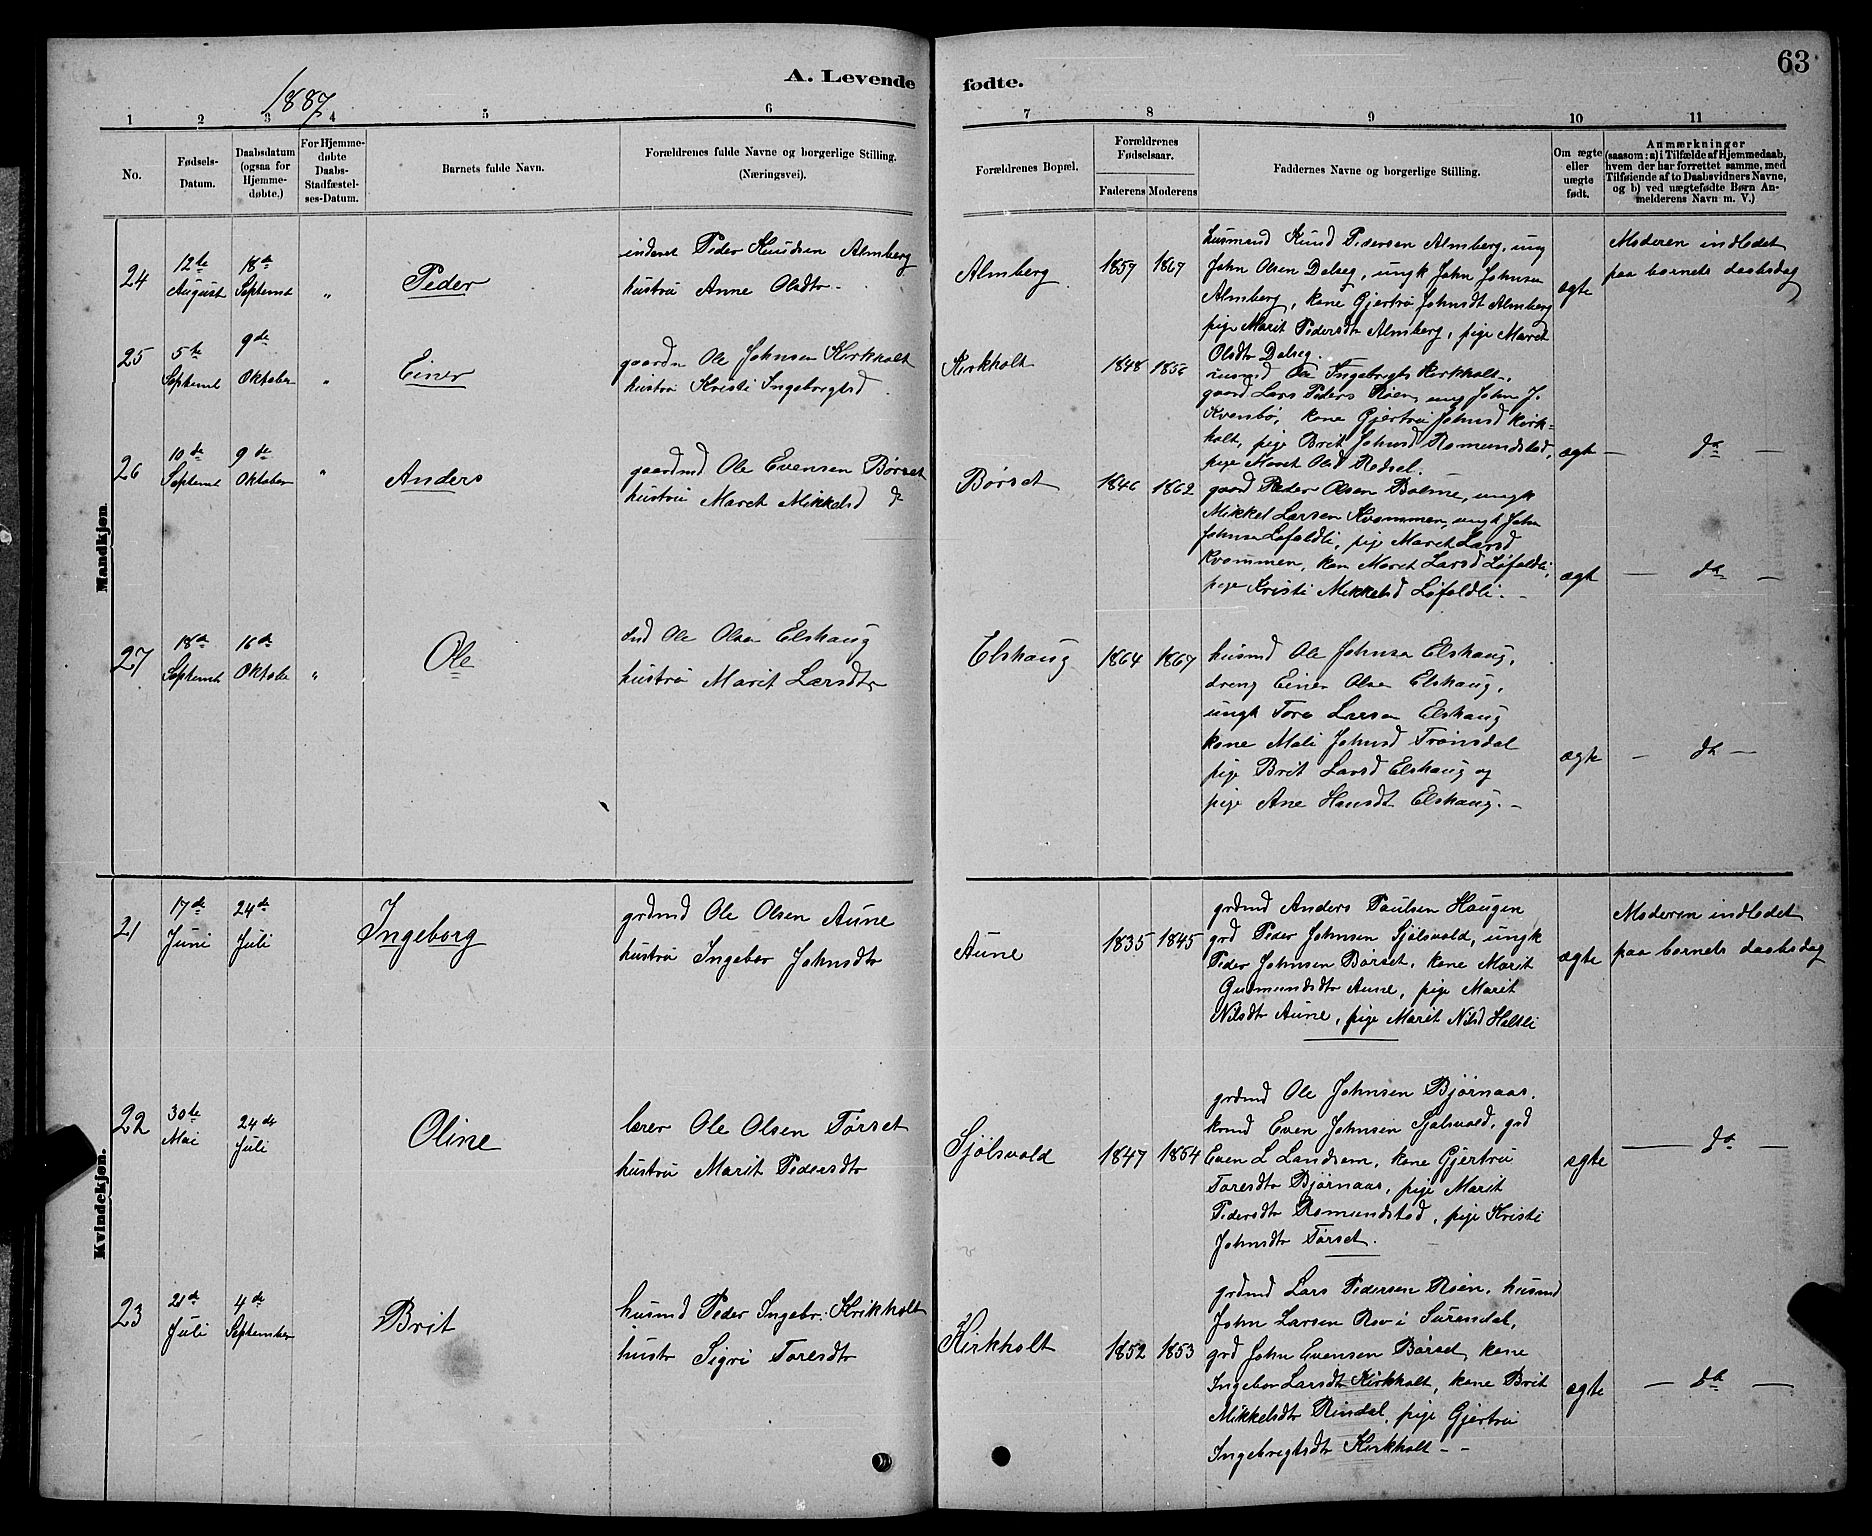 63
A. Levende fødte.
1887
1 2 3 4 5 6 7 8 9 10 11
No.
Fødsels-
Datum.
Daabsdatum
(ogsaa for
Hjemme-
døbte.)
For Hjemme-
døbte
Daabs-
Stadfæstel-
ses-Datum.
Barnets fulde Navn.
Forældrenes fulde Navne og borgerlige Stilling.
(Næringsvei).
Forældrenes Bopæl.
Forældrenes
Fødselsaar.
Faderens Moderens
Faddernes Navne og borgerlige Stilling.
Om ægte
eller
uægte
født.
Anmærkninger
(saasom: a) i Tilfælde af Hjemmedaab,
hvem der har forrettet samme, med
Tilføiende af to Daabsvidners Navne,
og b) ved uægtefødte Børn An-
melderens Navn m. V.)
Mandkjøn.
24
12te
August
18de
Septemt
"
Peder
inderst Peder Knudsen Almberg
hustru Anne Olsdtr -
Almberg
1859 1867
husmand Knud Pedersen Almberg, ung
John Olsen Dalseg, ungk John Johnsen
Almberg, kone Gjertru Johnsdt Almberg
pige Marit Pedersdtr Almberg, pige Maret
Olsdtr Dalseg.
ægte
Moderen indledet
paa barnets daabsdag
25
5te
Septemt
9de
Oktober
"
Einer
gaardm Ole Johnsen Kirkholt
hustru Kristi Ingebrigtsd
Kirkholt
1848
husmd Ole Ingebrigts Kirkholt,
gaard Lars Peders Røen, ung John J.
Kvensbø, kone Gjertru Johnsd Kirk=
holt, pige Brit Johnsd Romundstad,
pige Maret Olsd
ægt
- do -
26
10de
Septemt
9de
Oktober
"
Anders
gaardmd Ole Evensen Børset
hustru Maret Mikkelsd
Børset
1846 1862
gaard Peder Olsen Bolme, ungk
Mikkel Larsen Kvammen, ungk John
Johnsen Løfaldli, pige Maret Larsd
Kvammen, kon Maret Larsd Løfaldli,
pige Kristi Mikkelsd Løfaldli. -
ægt
- do -
27
18de
Septemt
16de
Oktober
"
Ole
Ole Olsen Elshaug
hustru Marit Larsdtr
Elshaug
1864 1867
husmd Ole Johnsen Elshaug,
dreng Einer Olsen Elshaug,
ungk Tore Larsen Elshaug
kone Mali Johnsd Trønsdal
pige Brit Larsd Elshaug og
pige Ane Hansdt Elshaug. -
ægte
- do -
Kvindekjøn.
21
17de
Juni
24de
Juli
Ingeborg
grdmd Ole Olsen Aune
hustru Ingebor Johnsdtr
Aune
1835 1845
grdmd Anders Paulsen Haugen
grd Peder Johnsen Sjølsvold, ungk
Peder Johnsen Børset, kone Marit
Gudmundsdtr Aune, pige Marit
Nilsdtr Aune, pige Marit Nilsd Holtli
ægte
Moderen indledet
paa barnets daabsdag
22
30te
Mai
24de
Juli
Oline
lærer Ole Olsen Tørset
hustru Marit Pedersdtr
Sjølsvold
1847 1854
grdmd Ole Johnsen Bjørnaas,
Even Johnsen Sjølsvold, grd
Even L Landsem, kone Gjertru
Toresdtr Bjørnaas, pige Marit
Pedersdtr Romundstad, pige Kristi
Johnsdtr Tørset.
ægte
- do -
23
21de
Juli
4de
September
Brit
husmd Peder Ingebr. Kirkholt
hustr Sigri Toresdtr
Kirkholt
1852 1853
grdmd Lars Pedersen Røen, husmd
John Larsen Rov i Surendal,
grd John Evensen Børset, kone
Ingebor Larsdtr Kirkholt, kone Brit
Mikkelsdtr Rindal, pige Gjertru
Ingebrigtsdtr Kirkholt - -
ægte
- do -